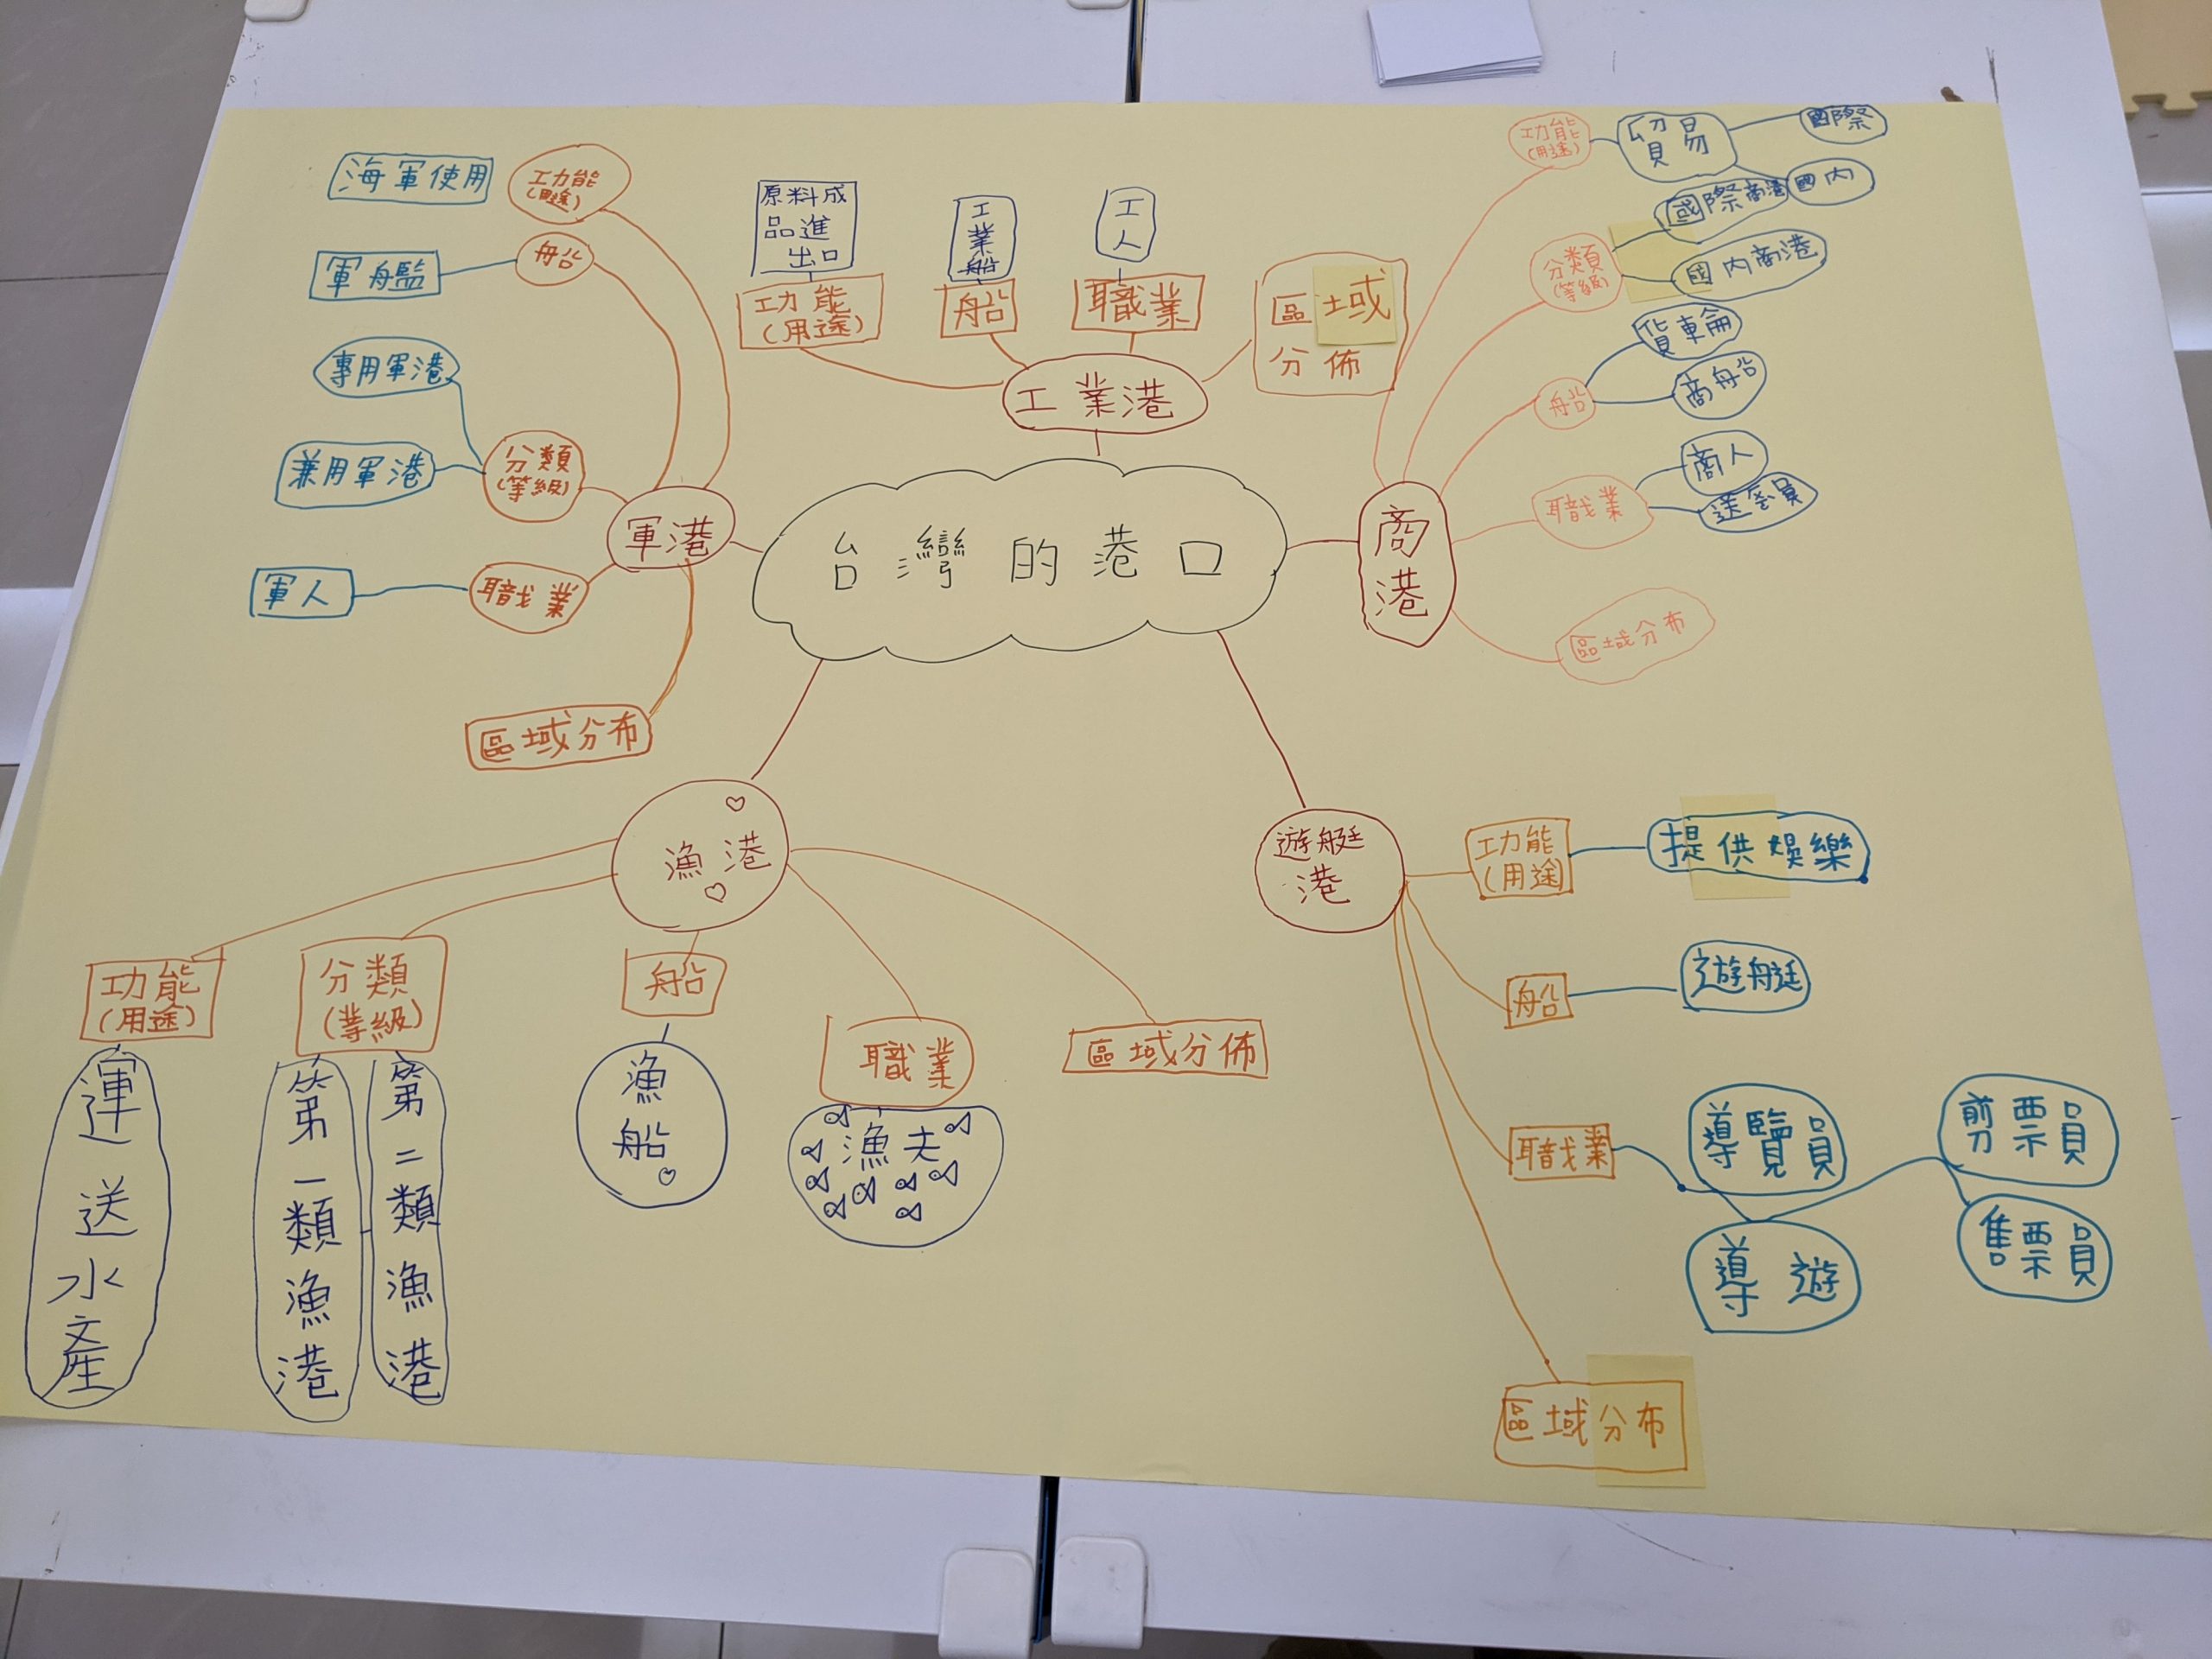 台灣的港口
軍港
功能
(用途)
海軍使用
船
軍艦
分類
(等級)
專用軍港
兼用軍港
職業
軍人
區域分布
工業港
功能
(用途)
原料成
品進
出口
船
工業船
職業
工人
區域
分佈
商港
功能
(用途)
貿易
國際
國內
分類
(等級)
國際商港
國內商港
船
貨車輪
商船
職業
商人
區域分布
遊艇
港
功能
(用途)
提供娛樂
船
遊艇
職業
導覽員
導遊
剪票員
售票員
區域分布
漁港
功能
(用途)
運送水產
分類
(等級)
第一類漁港
第二類漁港
船
漁船
職業
漁夫
區域分佈